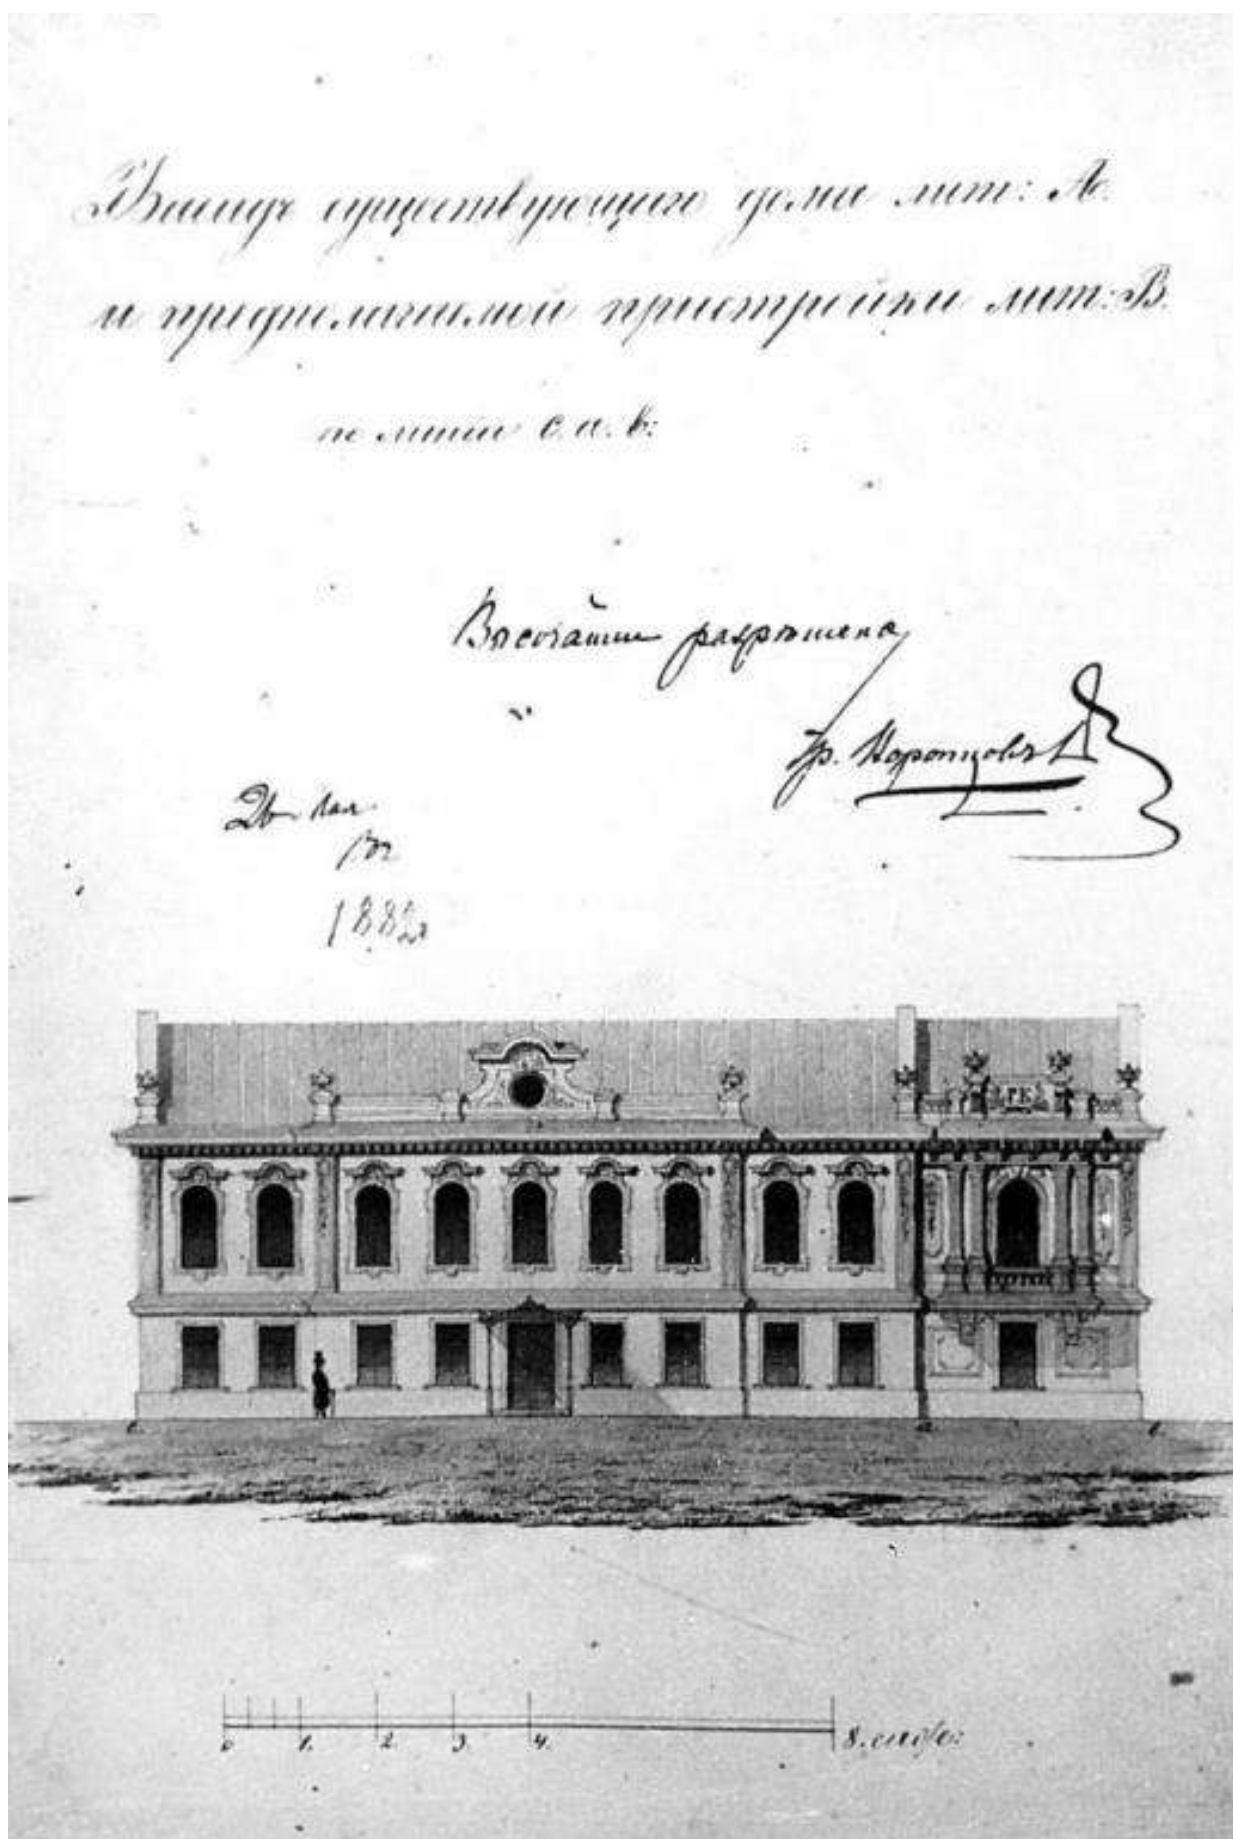 Фасадъ существующаго дома лит: А.
и предполагаемой пристройки лит: В.
по линіи с. а. в:
Высочайше разрѣшена
Гр. Воронцовъ Д
26
1882
РЕ
0 1. 2 3. 4. 8. саж: